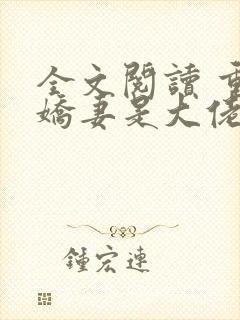 全文閱讀 重
嬌妻是大佬
鍾宏連